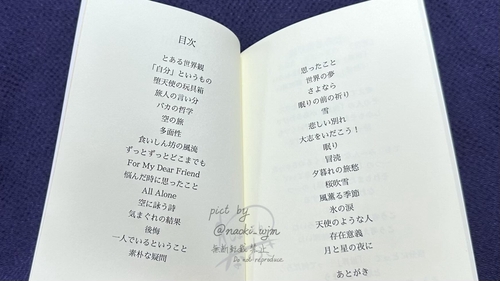 目次
とある世界観
「自分」というもの
堕天使の玩具箱
旅人の言い分
バカの哲学
空の旅
多面性
食いしん坊の風流
ずっとずっとどこまでも
For My Dear Friend
悩んだ時に思ったこと
All Alone
空に詠う詩
気まぐれの結果
後悔
一人でいるということ
素朴な疑問
思ったこと
世界の夢
さよなら
眠りの前の祈り
雪
悲しい別れ
大志をいだこう!
眠り
冒涜
夕暮れの旅愁
桜吹雪
風薫る季節
氷の涙
天使のような人
存在意義
月と星の夜に
あとがき
pict by
@naoki_wjm
無断転載禁止
Do not reproduce.